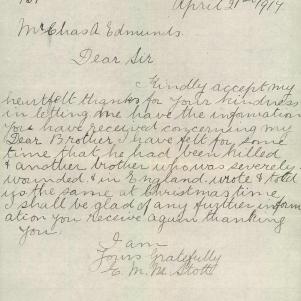 April 21st 1917
Mr Chas A Edmunds.
Dear Sir
Kindly accept my
heartfelt thanks for your kindness
in letting me have the information
you have received concerning my
Dear Brother, I have felt for some
time that he had been killed
& another brother who was severely
wounded & in England wrote & told
us the same at Christmas time
I shall be glad of any further inform
ation you receive again thanking
You.
I am
Yours Gratefully
E. M. Mc Stott